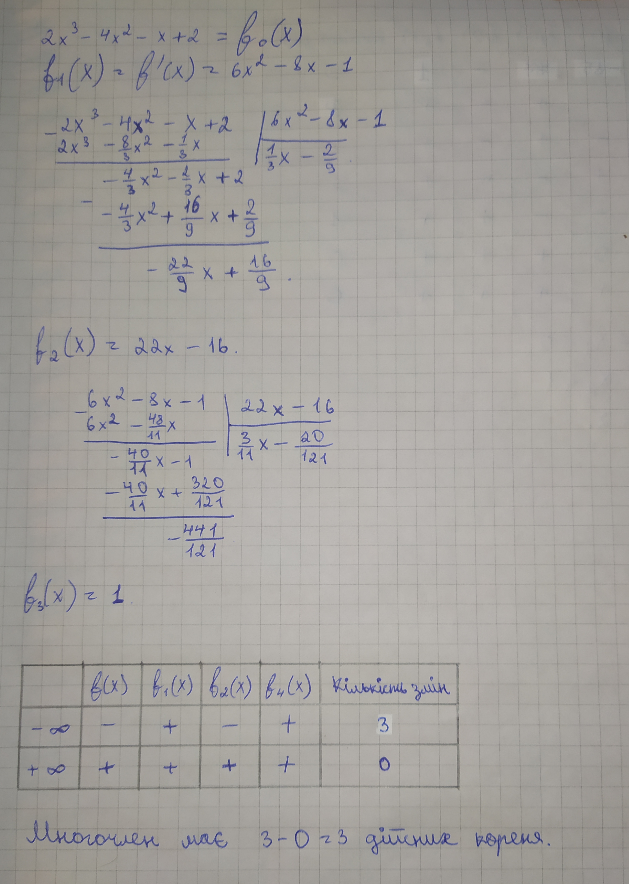 2x³ - 4x² - x + 2 = f₀(x)
f₁(x) = f'(x) = 6x² - 8x - 1
- 2x³ - 4x² - x + 2 | 6x² - 8x - 1
2x³ - 8/3x² - 1/3x | 1/3x - 2/9
- 4/3x² - 2/3x + 2
- - 4/3x² + 16/9x + 2/9
- 22/9x + 16/9.
f₂(x) = 22x - 16.
- 6x² - 8x - 1 | 22x - 16
6x² - 48/11x | 3/11x - 20/121
- 40/11x - 1
- 40/11x + 320/121
- 441/121
f₃(x) = 1
f(x) f₁(x) f₂(x) f₄(x) Кількість змін
-∞ - + - + 3
+∞ + + + + 0
Многочлен має 3-0=3 дійсних кореня.